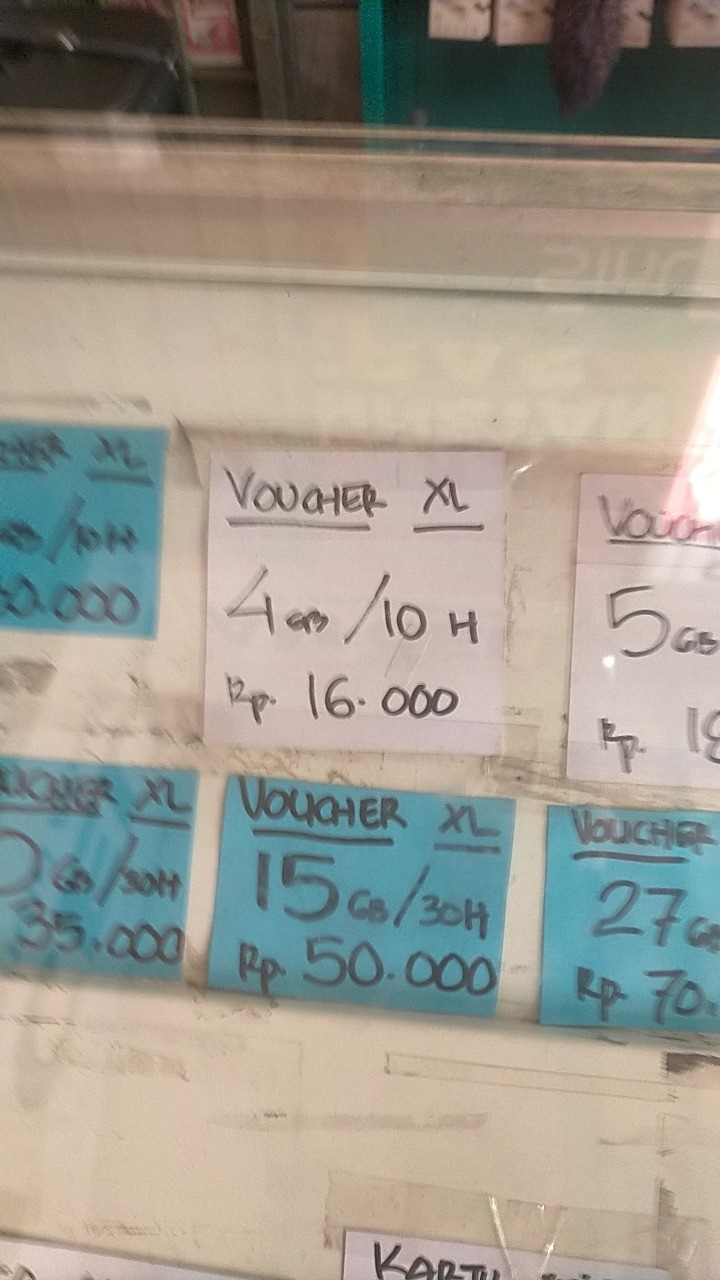 XL
/10H
0.000
VOUCHER XL
4GB/10 H
Rp. 16.000
5GB
Rp.
XL
GB/30H
35.000
VOUCHER XL
15GB/30H
Rp. 50.000
VOUCHER
27
Rp. 70.
KARTU